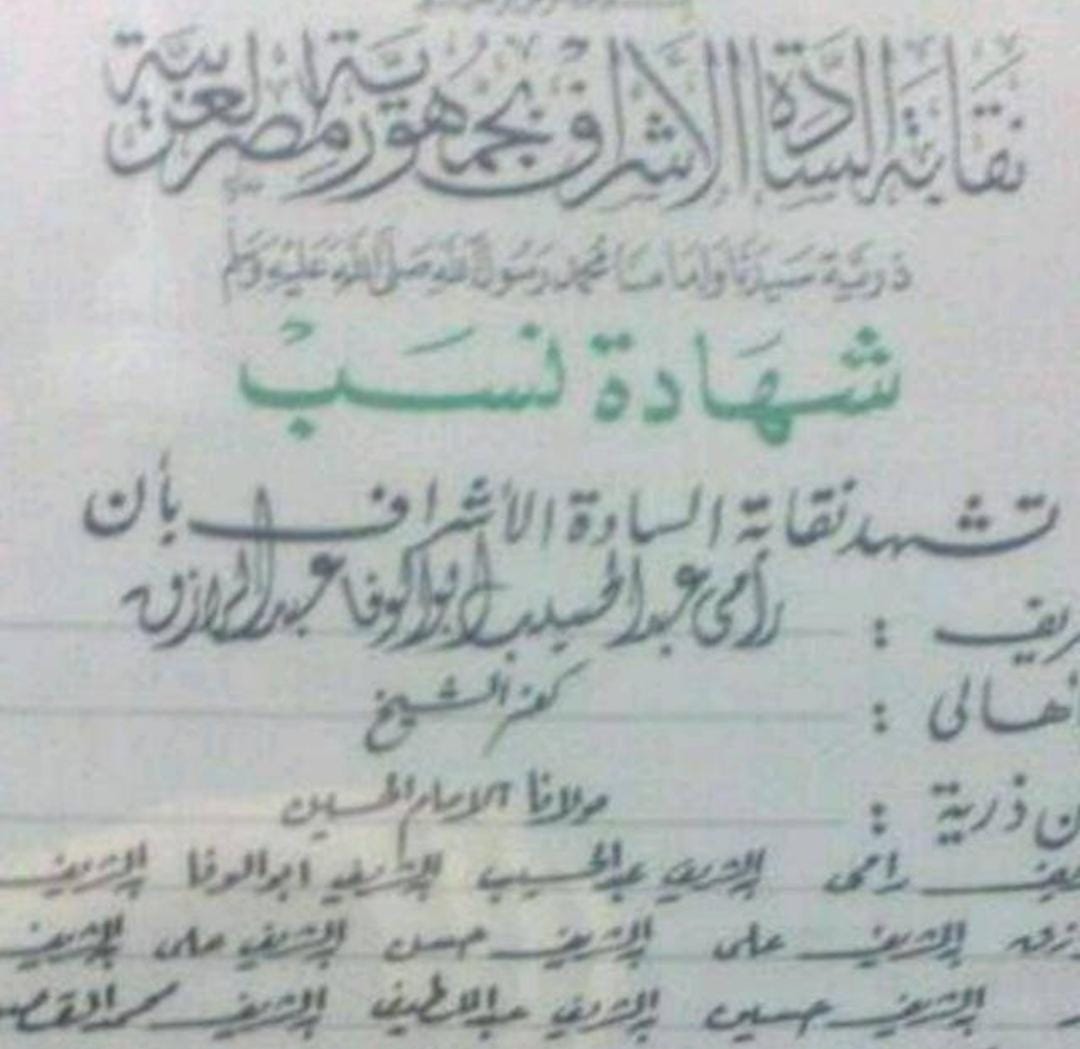 نقابة السادة الأشراف بجمهورية مصر العربية
ذرية سيدنا وإمامنا محمد رسول الله صلى الله عليه وسلم
شهادة نسب
تشهد نقابة السادة الأشراف بأن
ريف : رامى عبد الحسيب ابو الوفا عبد الرازق
أهالى : كفر الشيخ
ن ذرية : مولانا الامام الحسين
رامى الشريف عبد الحسيب الشريف ابو الوفا الشريف
الشريف على الشريف حسن الشريف على الشريف
الشريف حسين الشريف عبد اللطيف الشريف محمد